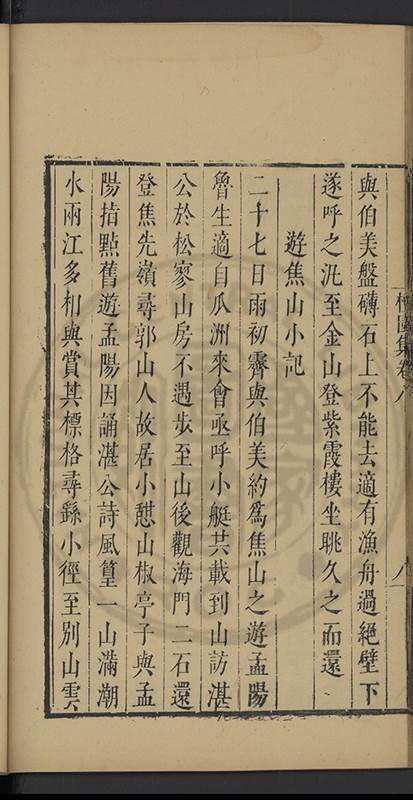 與伯美盤礴石上不能去適有漁舟過絕壁下
遂呼之汎至金山登紫霞樓坐眺久之而還
遊焦山小記
二十七日雨初霽與伯美約爲焦山之遊孟陽
魯生適自瓜洲來會亟呼小艇共載到山訪湛
公於松寥山房不遇步至山後觀海門二石還
登焦先嶺尋郭山人故居小憇山椒亭子與孟
陽指點舊遊孟陽因誦湛公詩風篁一山滿潮
水兩江多相與賞其標格尋繇小徑至別山雲
檀園集卷八
八